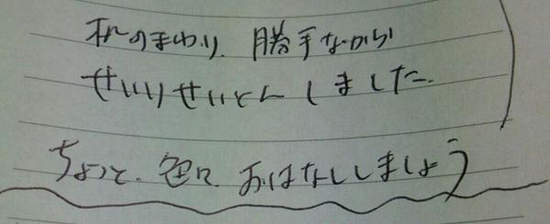 机のまわり、勝手ながら
せいりせいとんしました。
ちょっと、色々おはなししましょう